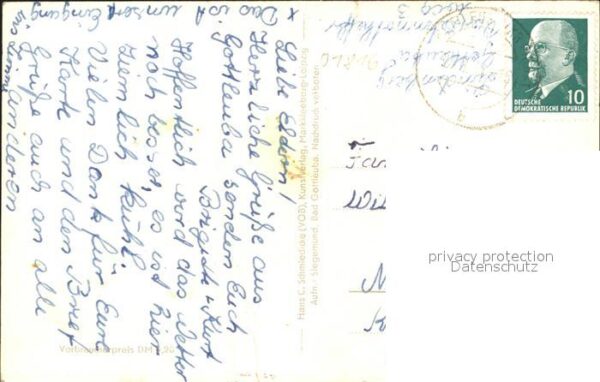 x Das ist unsere Eingang
Liebe Eltern!
Herzliche Grüße aus
Gottleuba senden Euch
Brigitte + Kurt
Hoffentlich wird das Wetter
noch besser, es ist hier
ziemlich kühl.
Vielen Dank für Eure
Karte und den Brief
Grüße auch an alle
anderen
Hans C. Schmiedicke (VOB), Kunstverlag, Markkleeberg-Leipzig
Aufn.: Siegemund, Bad Gottleuba. Nachdruck verboten
Verbraucherpreis DM 0,20
Gottleuba
DEUTSCHE
DEMOKRATISCHE REPUBLIK
10
privacy protection
Datenschutz